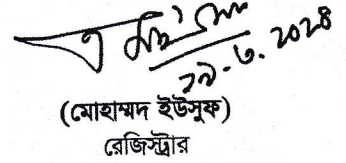 ২৭.৩.২০২৪
(মোহাম্মদ ইউসুফ)
রেজিস্ট্রার